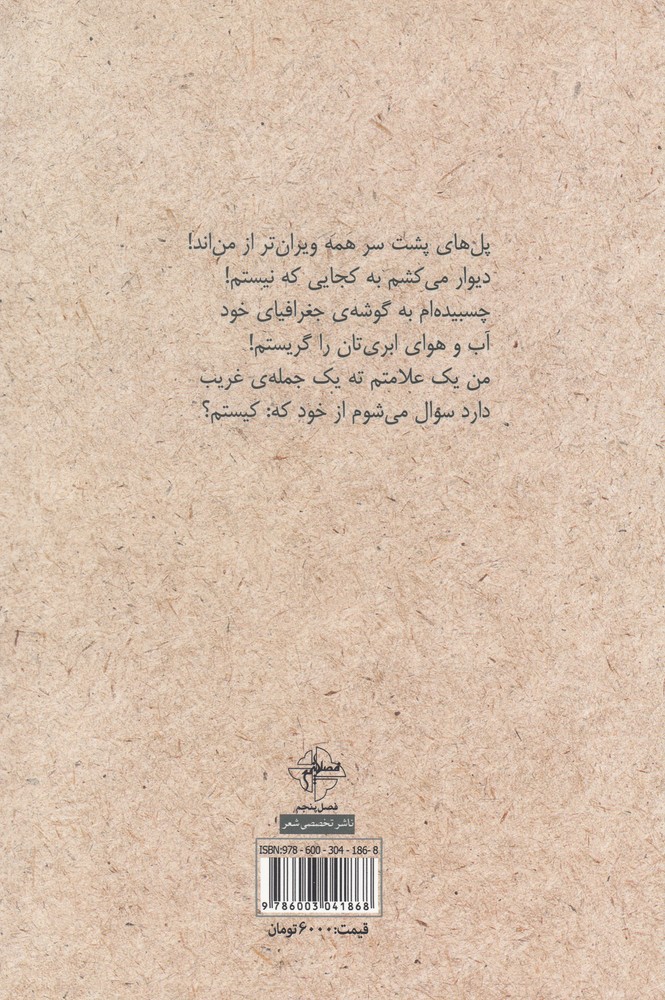 پل‌های پشت سر همه ویران‌تر از من‌اند!
دیوار می‌کشم به کجایی که نیستم!
چسبیده‌ام به گوشه‌ی جغرافیای خود
آب و هوای ابری‌تان را گریستم!
من یک علامتم ته یک جمله‌ی غریب
دارد سؤال می‌شوم از خود که: کیستم؟
فصل پنجم
فصل پنجم
ناشر تخصصی شعر
ISBN:978 - 600 - 304 - 186- 8
9 786003 041868
قیمت:۶۰۰۰تومان